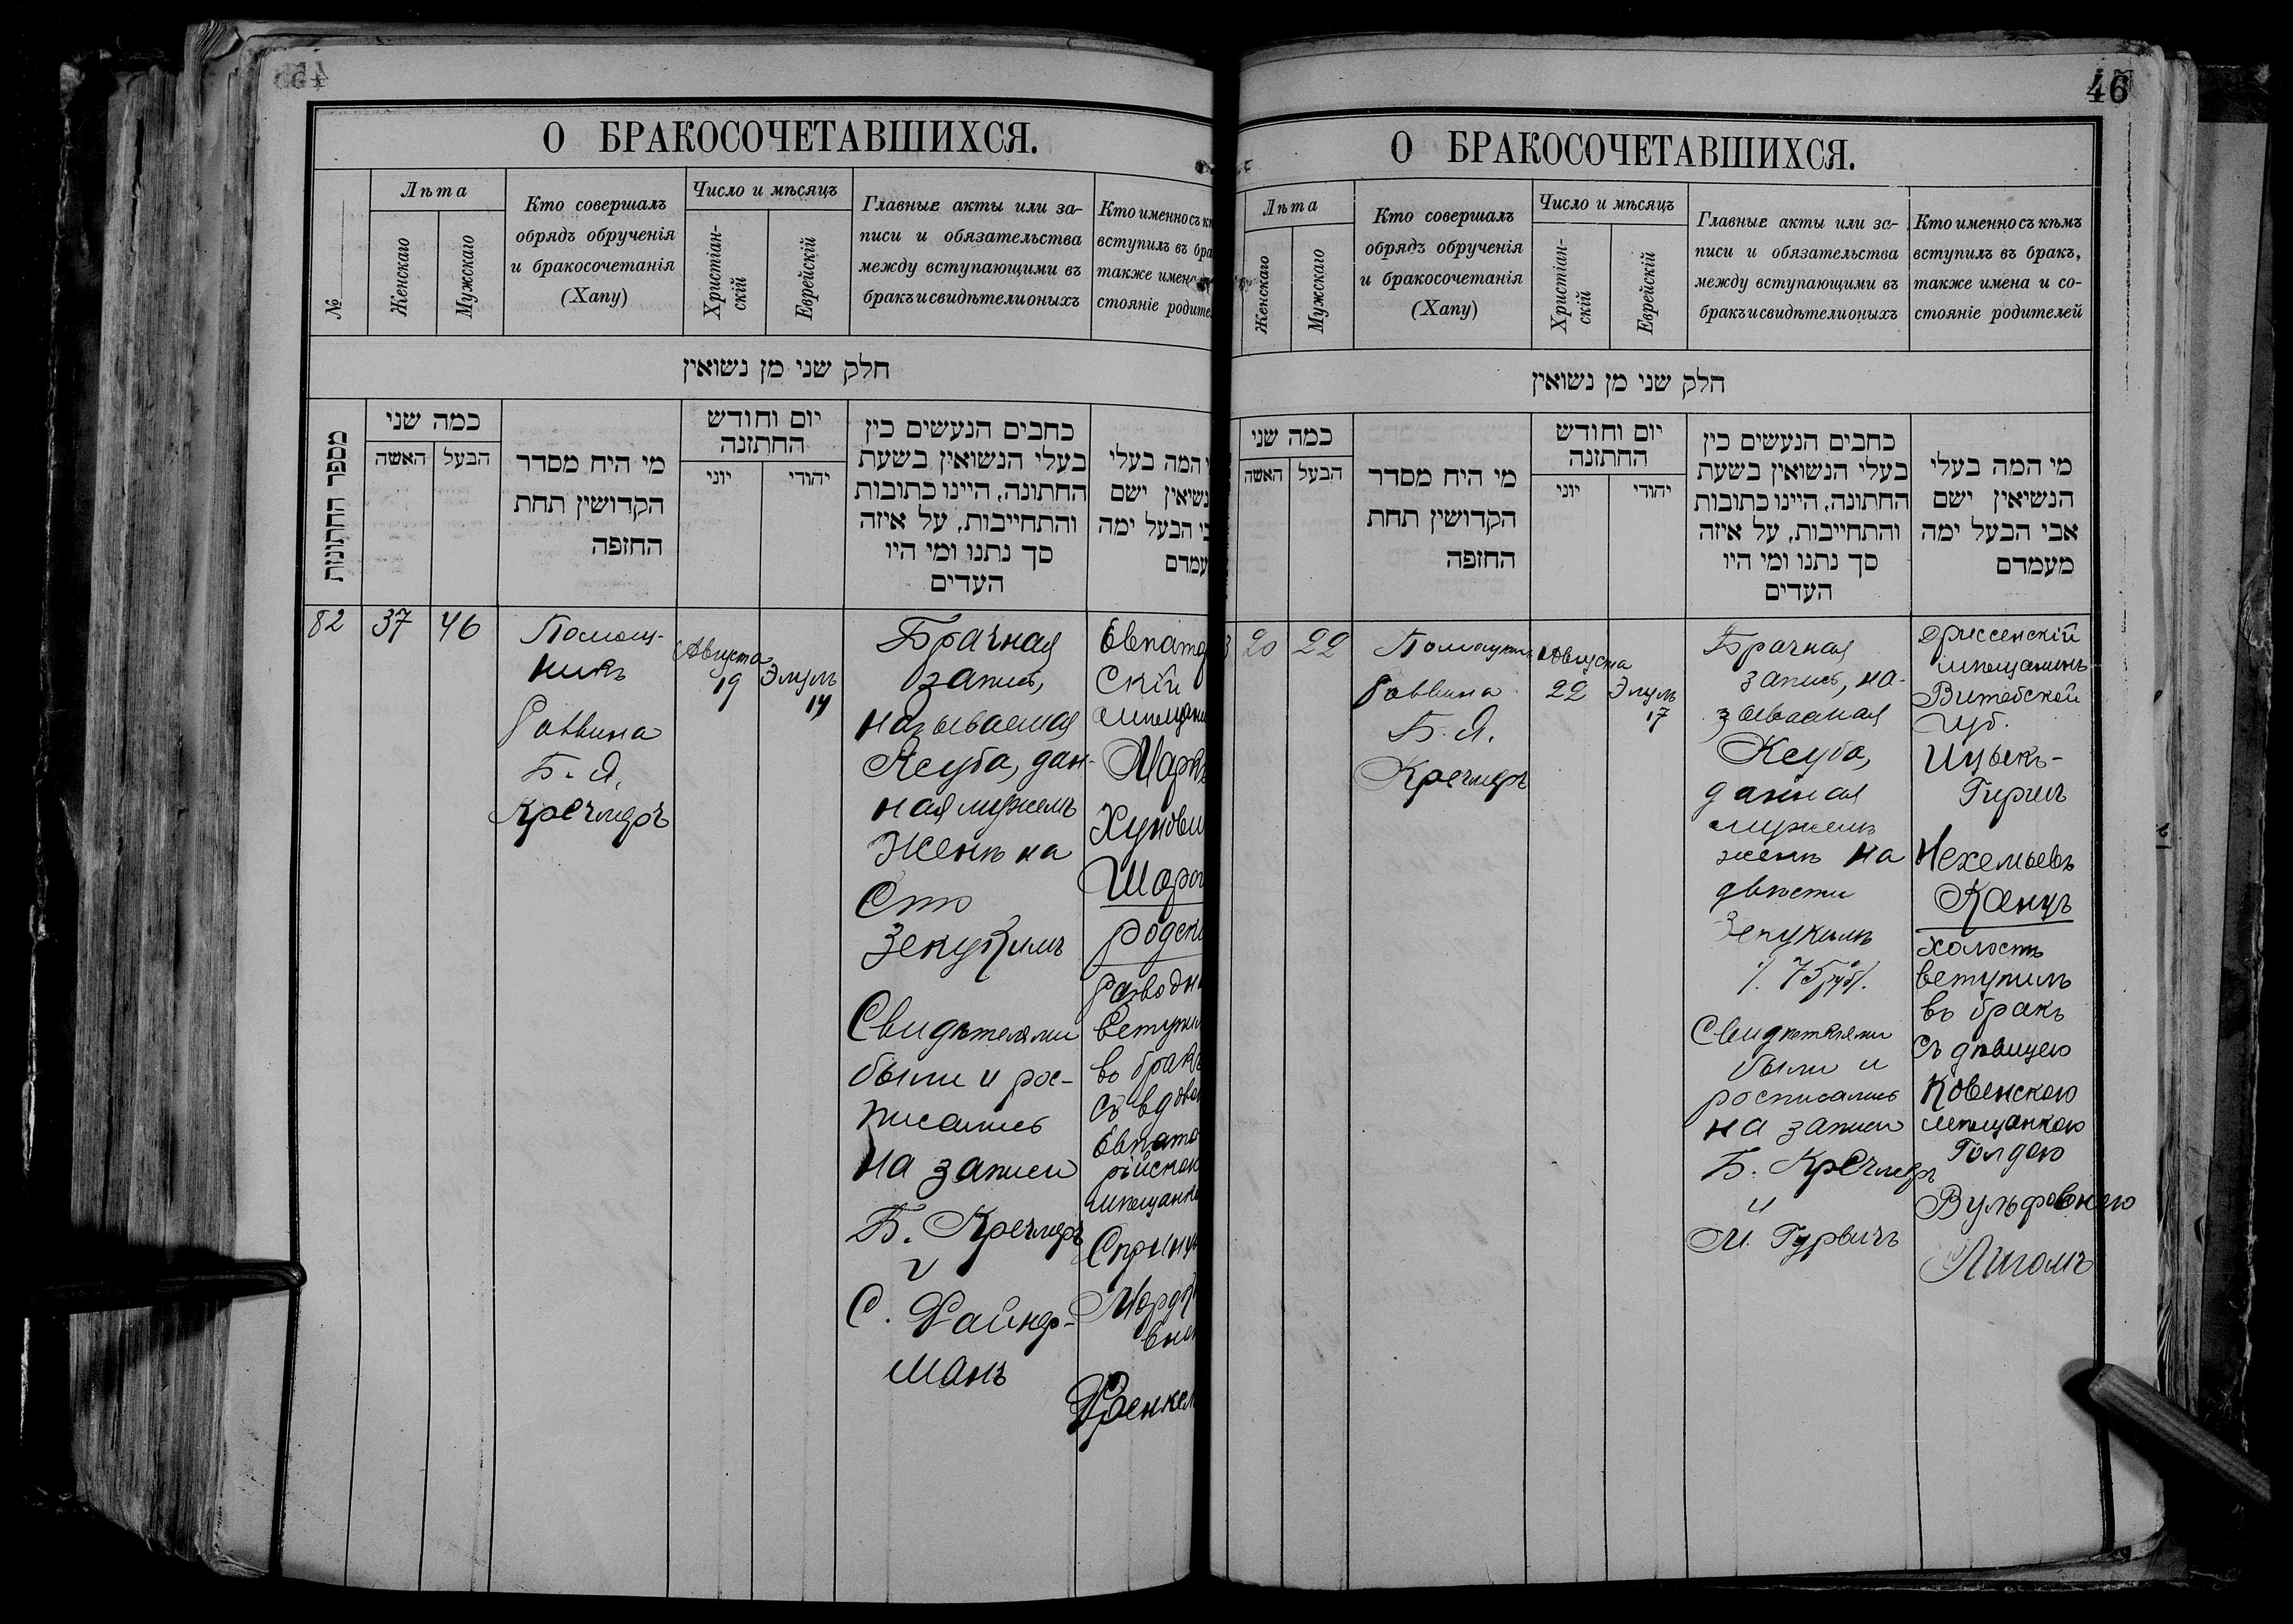 О БРАКОСОЧЕТАВШИХСЯ.
№
Лѣта
Женскаго
Мужскаго
Кто совершалъ
обрядъ обрученія
и бракосочетанія
(Хапу)
Число и мѣсяцъ
Христіан-
скій
Еврейскій
Главные акты или за-
писи и обязательства
между вступающими въ
бракъ и свидѣтели оныхъ
Кто именно съ
вступилъ въ
также
стояніе
חלק שני מן נשואין
מספר החתונות
כמה שני
האשה
הבעל
מי היח מסדר
הקדושין תחת
החזפה
יום וחודש
החתזנה
יוני
יהודי
כחבים הנעשים כין
בעלי הנשואין בשעת
החתונה, היינו כתובות
והתחייבות, על איזה
סך נתנו ומי היו
העדים
המה בעלי
ישם
הבעל ימה
82
37
46
Помощ-
никъ
Раввина
Б. Я.
Кречмеръ
Августа
19
Элулъ
14
Брачная
запись,
называемая
Ксуба, дан-
ная мужемъ
женѣ на
Сто
Зекукимъ
Свидѣтелями
были и рос-
писались
на записи
Б. Кречмеръ
и
С. Файнер-
манъ
Евпато
Скій
мѣщани
Марк
Хунови
Шаро
родск
Разводн
вступи
въ бракъ
съ вдово
Евпато
рійско
мѣщанк
Сприн
Мордк
вно
Френкел
46
О БРАКОСОЧЕТАВШИХСЯ.
Лѣта
Женскаго
Мужскаго
Кто совершалъ
обрядъ обрученія
и бракосочетанія
(Хапу)
Число и мѣсяцъ
Христіан-
скій
Еврейскій
Главные акты или за-
писи и обязательства
между вступающими въ
бракъ и свидѣтели оныхъ
Кто именно съ кѣмъ
вступилъ въ бракъ,
также имена и со-
стояніе родителей
חלק שני מן נשואין
כמה שני
האשה
הבעל
מי היח מסדר
הקדושין תחת
החזפה
יום וחודש
החתזנה
יוני
יהודי
כחבים הנעשים כין
בעלי הנשואין בשעת
החתונה, היינו כתובות
והתחייבות, על איזה
סך נתנו ומי היו
העדים
מי המה בעלי
הנשיאין ישם
אבי הבעל ימה
מעמדם
3
20
22
Помощникъ
Раввина
Б. Я.
Кречмеръ
Августа
22
Элулъ
17
Брачная
запись, на-
зываемая
Ксуба,
данная
мужемъ
женѣ на
двѣсти
Зекукимъ
75 руб.
Свидѣтелями
были и
росписались
на записи
Б. Кречмеръ
и
М. Гурвичъ
Дриссенскій
мѣщанинъ
Витебской
губ.
Ицыкъ-
Гиршъ
Нехемьевъ
Канцъ
холостъ
вступилъ
въ бракъ
съ дѣвицею
Ковенскою
мѣщанкою
Голдою
Вульфовною